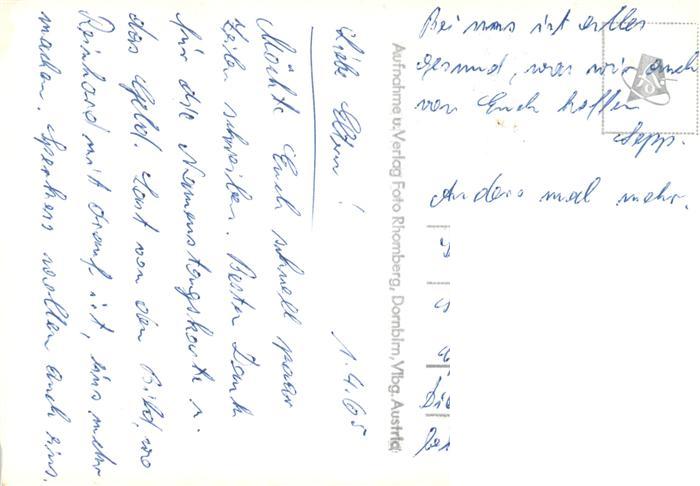 Liebe Eltern!
1.4.65
Möchte Euch schnell paar
Zeilen schreiben. Besten Dank
für die Namenstagskarte u.
das Geld. Laut von den Bild, wo
Reinhard mit drauf ist, eins mehr
machen. Sperkers wollen auch eins.
Aufnahme u. Verlag Foto Rhomberg, Dornbirn, Vlbg. Austria
Bei uns ist alles
gesund, was wir auch
von Euch hoffen
Sepp.
Anders mal mehr.